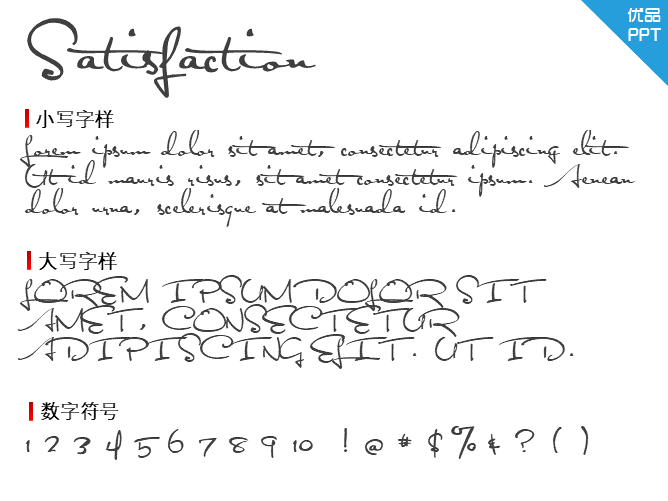 优品
PPT
Satisfaction
小写字样
Lorem ipsum dolor sit amet, consectetur adipiscing elit.
Ut id mauris risus, sit amet consectetur ipsum. Aenean
dolor urna, scelerisque at malesuada id.
大写字样
LOREM IPSUM DOLOR SIT
AMET, CONSECTETUR
ADIPISCING ELIT. UT ID.
数字符号
1 2 3 4 5 6 7 8 9 10 ! @ # $ % & ? ( )